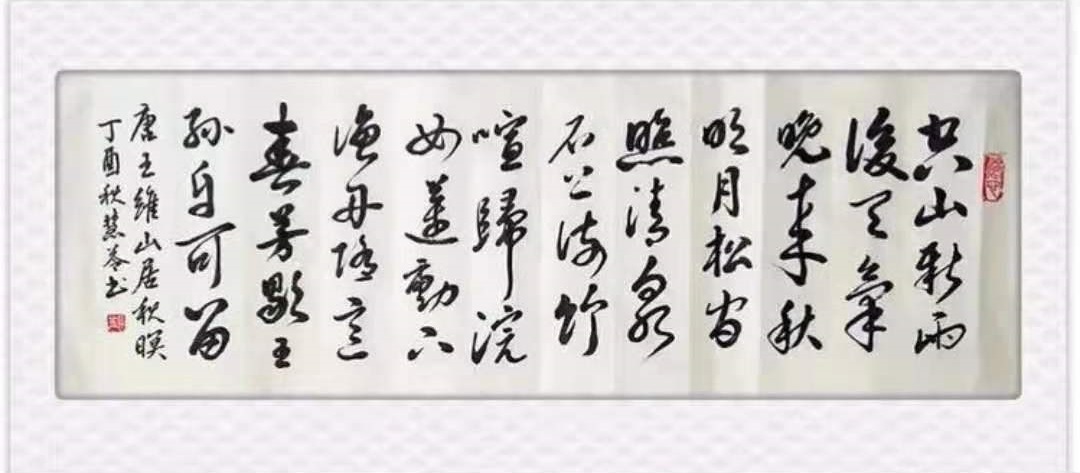 空山新雨
後天氣
晚来秋
明月松間
照清泉
石上流竹
喧歸浣
女蓮動下
漁舟隨意
春芳歇王
孫自可留
唐王維山居秋暝
丁酉秋慧书